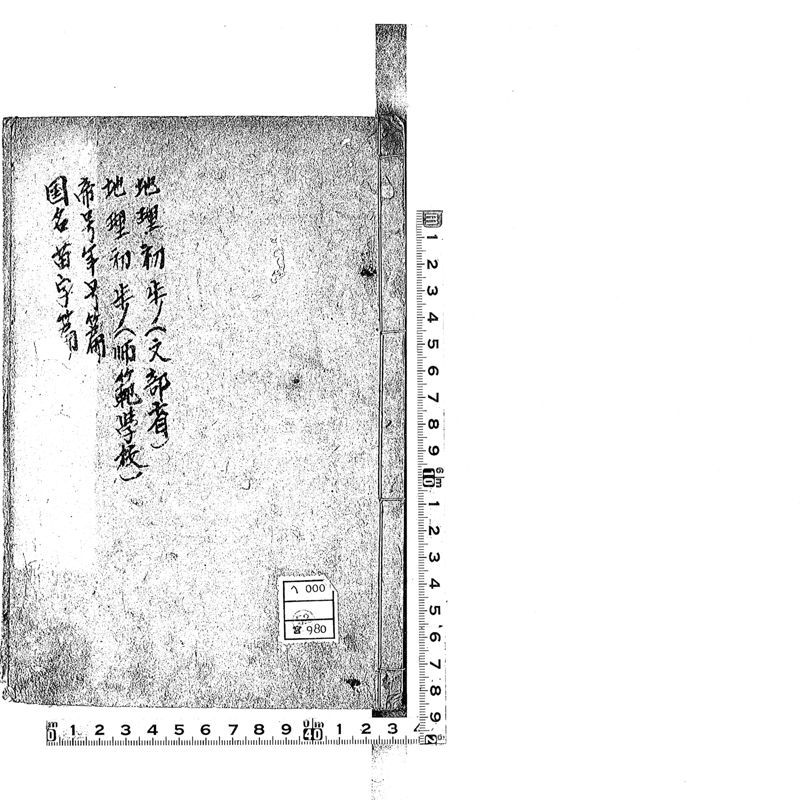 地理初歩(文部省)
地理初歩(师範學校)
帝号年号篇
国名苗字篇
000
980
m 1 2 3 4 5 6 7 8 9 10 1 2 3 4 5 6 7 8 9
0 1 2 3 4 5 6 7 8 9 10 1 2 3